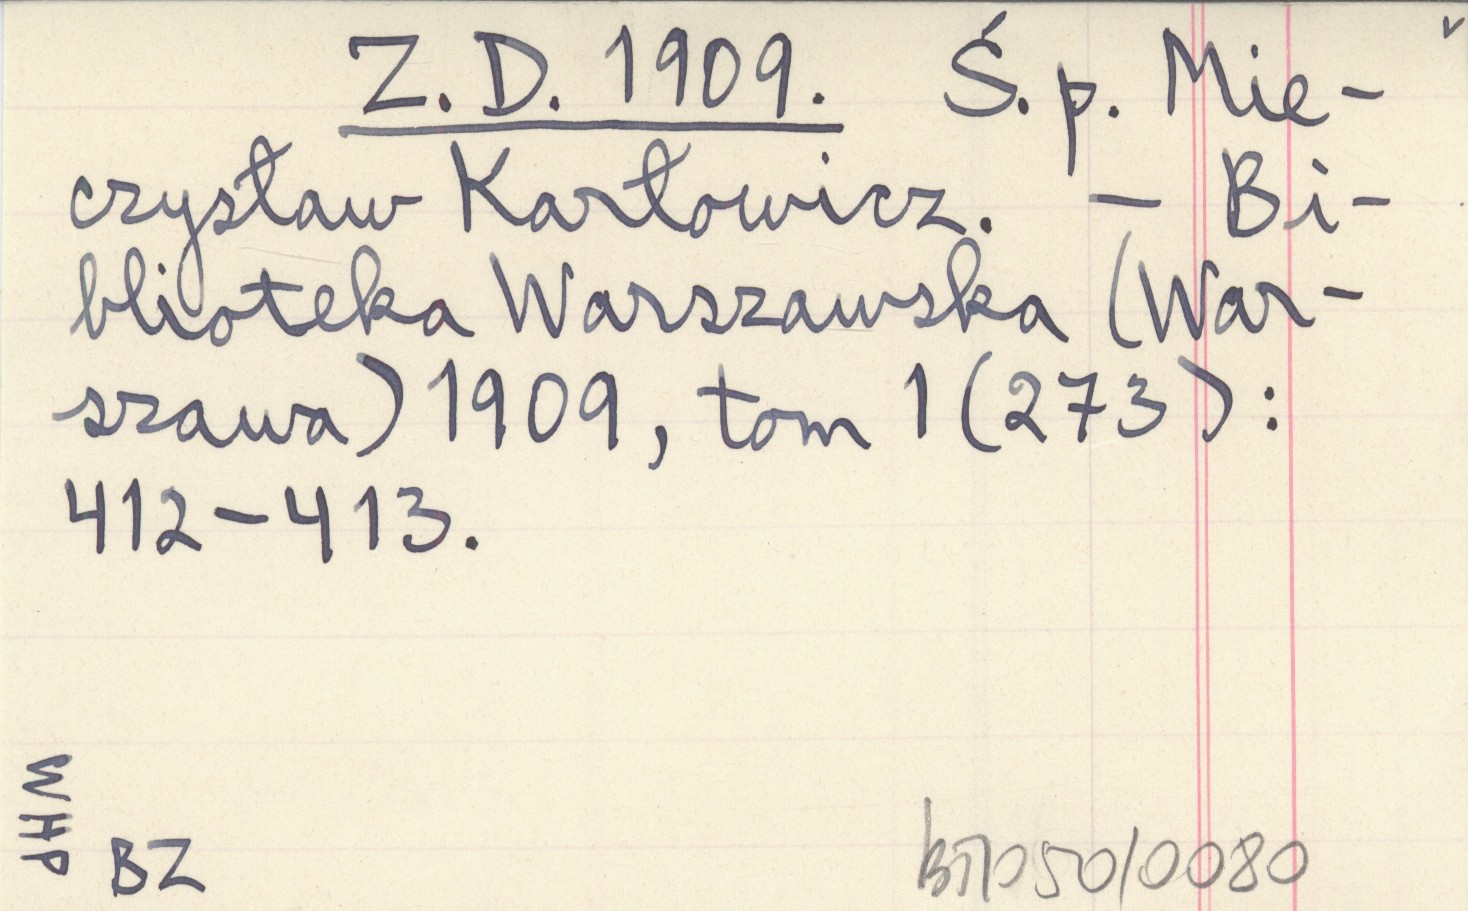 Z. D. 1909. Ś. p. Mie-
czysław Karłowicz. — Bi-
blioteka Warszawska (War-
szawa) 1909, tom 1 (273):
412-413.
WHP
BZ